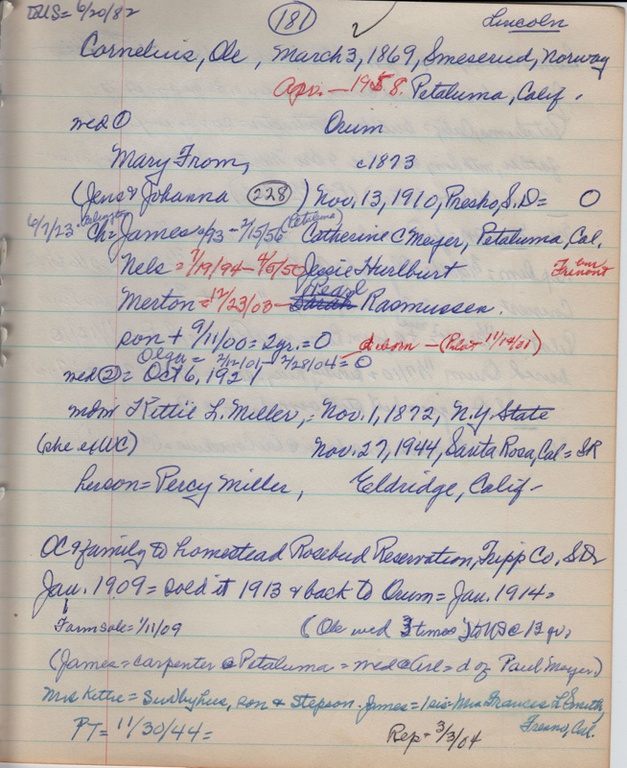 6/20/82
181
Lincoln
Cornelius, Ole, March 3, 1869, Smeserud, Norway
Apr. — 1958. Petaluma, Calif.
med ① Orum
Mary From, c1873
(Jens & Johanna 228) Nov. 13, 1910, Presho, S.D. = O
6/7/23 Ch = James 93 - 2/15/56 (Petaluma) Catherine C Meyer, Petaluma, Cal.
Nels = 7/19/94 - Jessie Hurlburt bur Fremont
Merton = 12/23/03 - Sarah Pearl Rasmussen.
son + 9/11/00 = 2yr. = O
Olga = 2/12/01 - 2/28/04 = O
med ② = Oct 6, 1921
mdm Kittie L. Miller, Nov. 1, 1872, N.Y. State
(she ex WC) Nov. 27, 1944, Santa Rosa, Cal = SR
herson = Percy Miller, Eldridge, Calif-
OC & family to homestead Rosebud Reservation, Tripp Co, S.D.
Jan. 1909 = sold it 1913 & back to Orum = Jan. 1914 =
Farm sale = 1/11/09 (Ole med 3 times
(James = carpenter @ Petaluma = med = d of Paul Meyer)
Mrs Kittie = Surv by hus, son & stepson. James = 1 sis = Mrs Frances L Smith,
Fresno, Cal.
PT = 11/30/44 =
Rep = 3/3/04